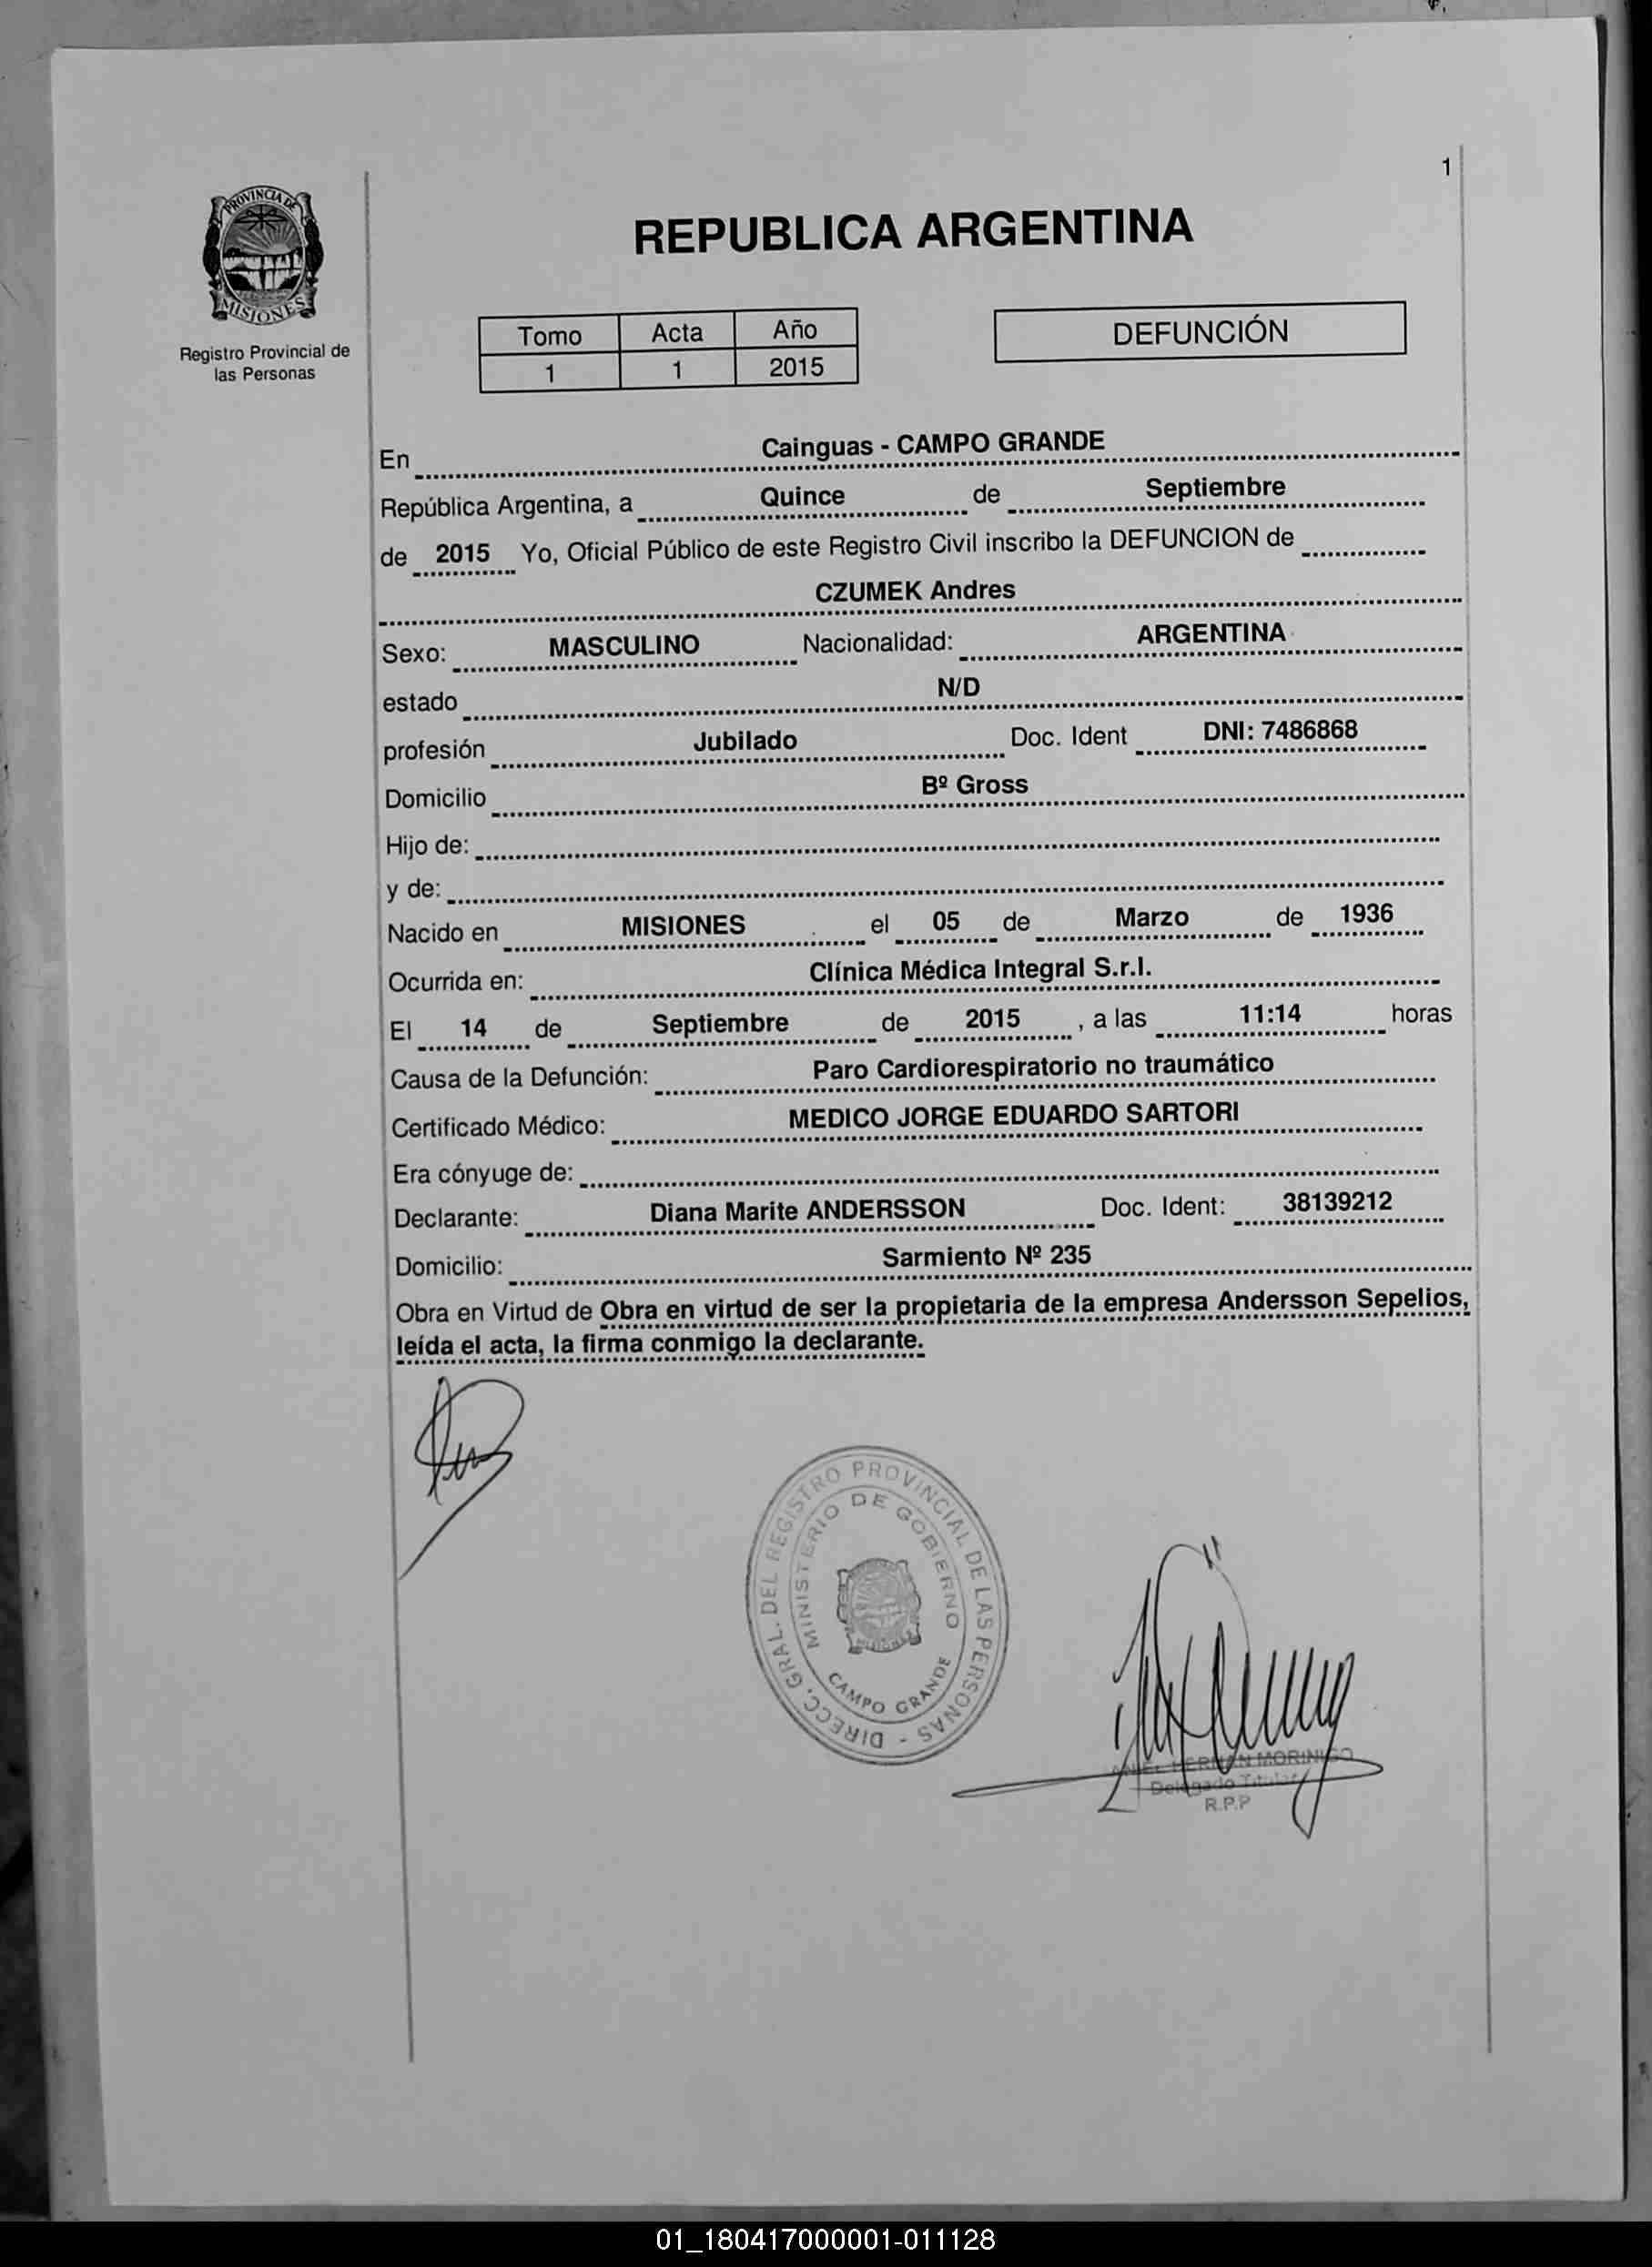 1
PROVINCIA DE
MISIONES
Registro Provincial de
las Personas
REPUBLICA ARGENTINA
Tomo Acta Año
1 1 2015
DEFUNCIÓN
En Cainguas - CAMPO GRANDE
República Argentina, a Quince de Septiembre
de 2015 Yo, Oficial Público de este Registro Civil inscribo la DEFUNCION de
CZUMEK Andres
Sexo: MASCULINO Nacionalidad: ARGENTINA
estado N/D
profesión Jubilado Doc. Ident DNI: 7486868
Domicilio Bº Gross
Hijo de:
y de:
Nacido en MISIONES el 05 de Marzo de 1936
Ocurrida en: Clínica Médica Integral S.r.l.
El 14 de Septiembre de 2015 , a las 11:14 horas
Causa de la Defunción: Paro Cardiorespiratorio no traumático
Certificado Médico: MEDICO JORGE EDUARDO SARTORI
Era cónyuge de:
Declarante: Diana Marite ANDERSSON Doc. Ident: 38139212
Domicilio: Sarmiento Nº 235
Obra en Virtud de Obra en virtud de ser la propietaria de la empresa Andersson Sepelios,
leída el acta, la firma conmigo la declarante.
DIRECC. GRAL. DEL REGISTRO PROVINCIAL DE LAS PERSONAS -
MINISTERIO DE GOBIERNO
CAMPO GRANDE
HERNAN MORINIGO
Delegado Titular
R.P.P
01_180417000001-011128